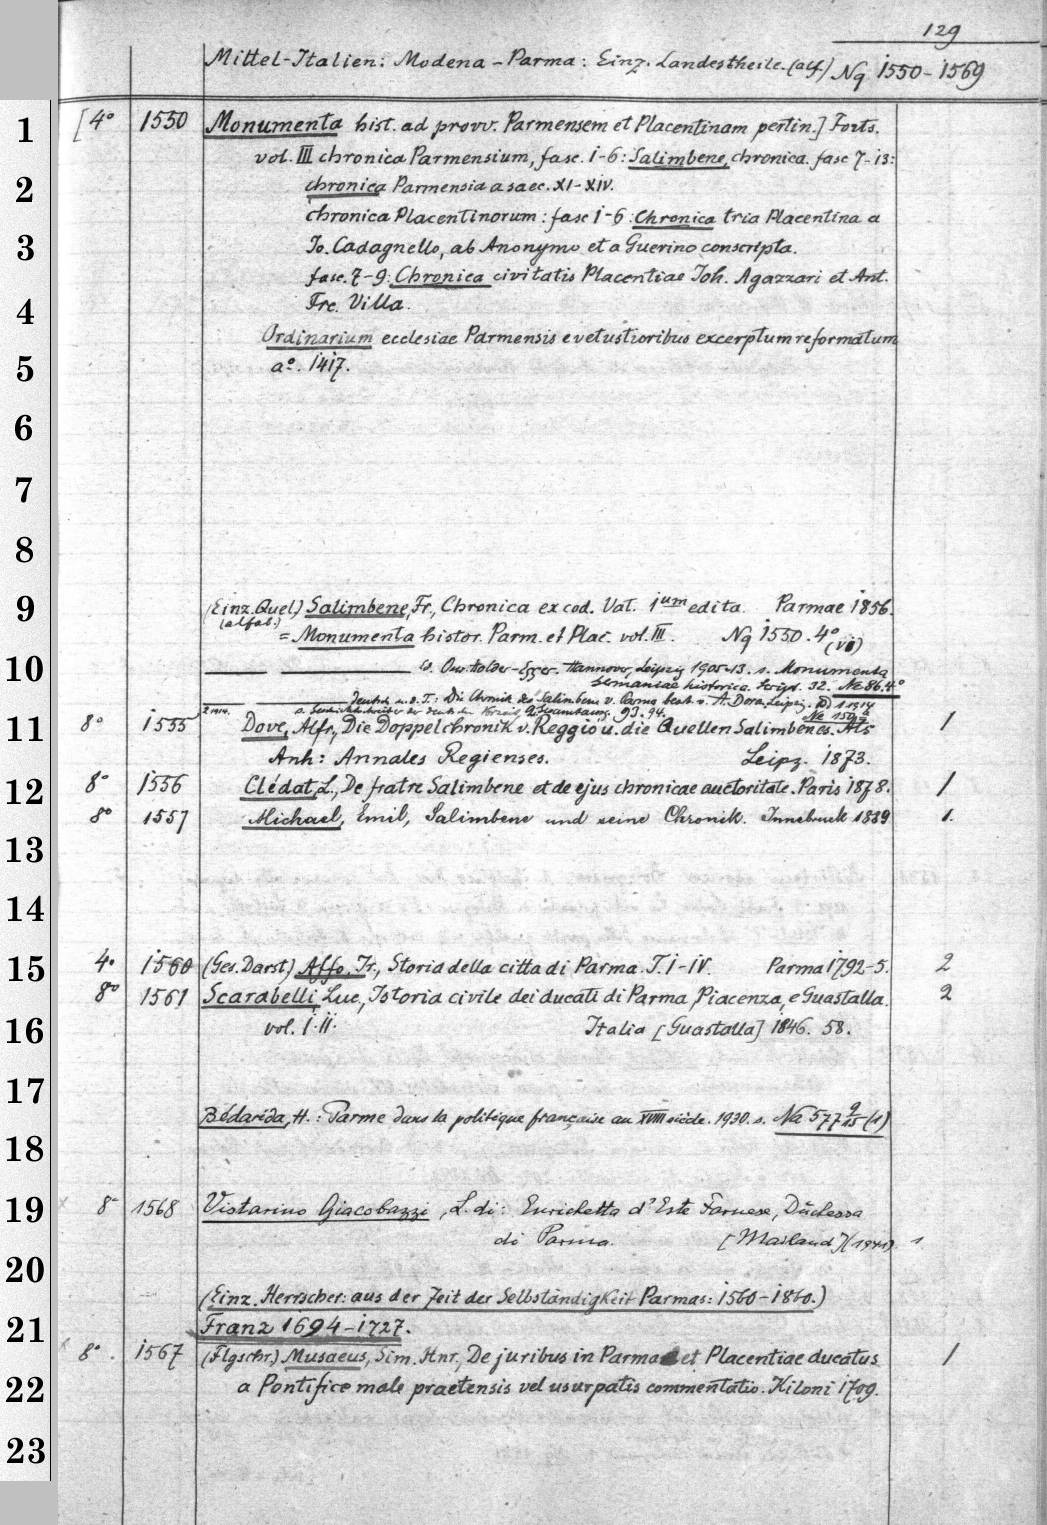 129
Mittel-Italien: Modena - Parma: Einz. Landestheile. (alf.) Nq 1550-1569
1
[4° 1550 Monumenta hist. ad provv. Parmensem et Placentinam pertin.] Forts.
vol. III chronica Parmensium, fasc. 1-6: Salimbene, chronica. fasc 7-13:
2
chronica Parmensia a saec. XI-XIV.
chronica Placentinorum: fasc 1-6: Chronica tria Placentina a
3
Jo. Cadagnello, ab Anonymo et a Guerino conscripta.
fasc. 7-9: Chronica civitatis Placentiae Joh. Agazzari et Ant.
4
Frc. Villa.
Ordinarium ecclesiae Parmensis e vetustioribus excerptum reformatum
5
a°. 1417.
6
7
8
9
(Einz. Quel.) Salimbene, Fr., Chronica ex cod. Vat. 1um edita. Parmae 1856.
(alfab.)
= Monumenta histor. Parm. et Plac. vol. III. Nq 1550. 4°
(VII)
10
ed. Osw. Holder-Egger. Hannover, Leipzig 1905-13. s. Monumenta
Germaniae historica. Script. 32. Ne 86. 4°
Deutsch u. d. T.: Die Chronik des Salimbene v. Parma bearb. v. A. Doren, Leipzig.
93. 94.
11
8° 1555 Dove, Alfr., Die Doppelchronik v. Reggio u. die Quellen Salimbenes. Als 1
Anh: Annales Regienses. Leipz. 1873.
12
8° 1556 Clédat, L., De fratre Salimbene et de ejus chronicae auctoritate. Paris 1878. 1
8° 1557 Michael, Emil, Salimbene und seine Chronik. Innsbruck 1889 1.
13
14
15
4° 1560 (Ges. Darst) Affo, Ir., Storia della citta di Parma. T. I-IV. Parma 1792-5. 2
8° 1561 Scarabelli Luc., Istoria civile dei ducati di Parma, Piacenza, e Guastalla. 2
16
vol. I. II. Italia [Guastalla] 1846. 58.
17
Bédarida, H.: Parme dans la politique française au XVIII siècle. 1930. s. Na 577 9/15 (1)
18
19
8° 1568 Vistarino Giacobazzi, L. di: Enrichetta d'Este Farnese, Duchessa
di Parma. [Mailand] (1941). 1
20
(Einz. Herrscher: aus der Zeit der Selbständigkeit Parmas: 1560-1860.)
21
Franz 1694-1727.
8°. 1567 (Flgschr.) Musaeus, Sim. Hnr., De juribus in Parmae et Placentiae ducatus 1
22
a Pontifice male praetensis vel usurpatis commentatio. Kiloni 1709.
23